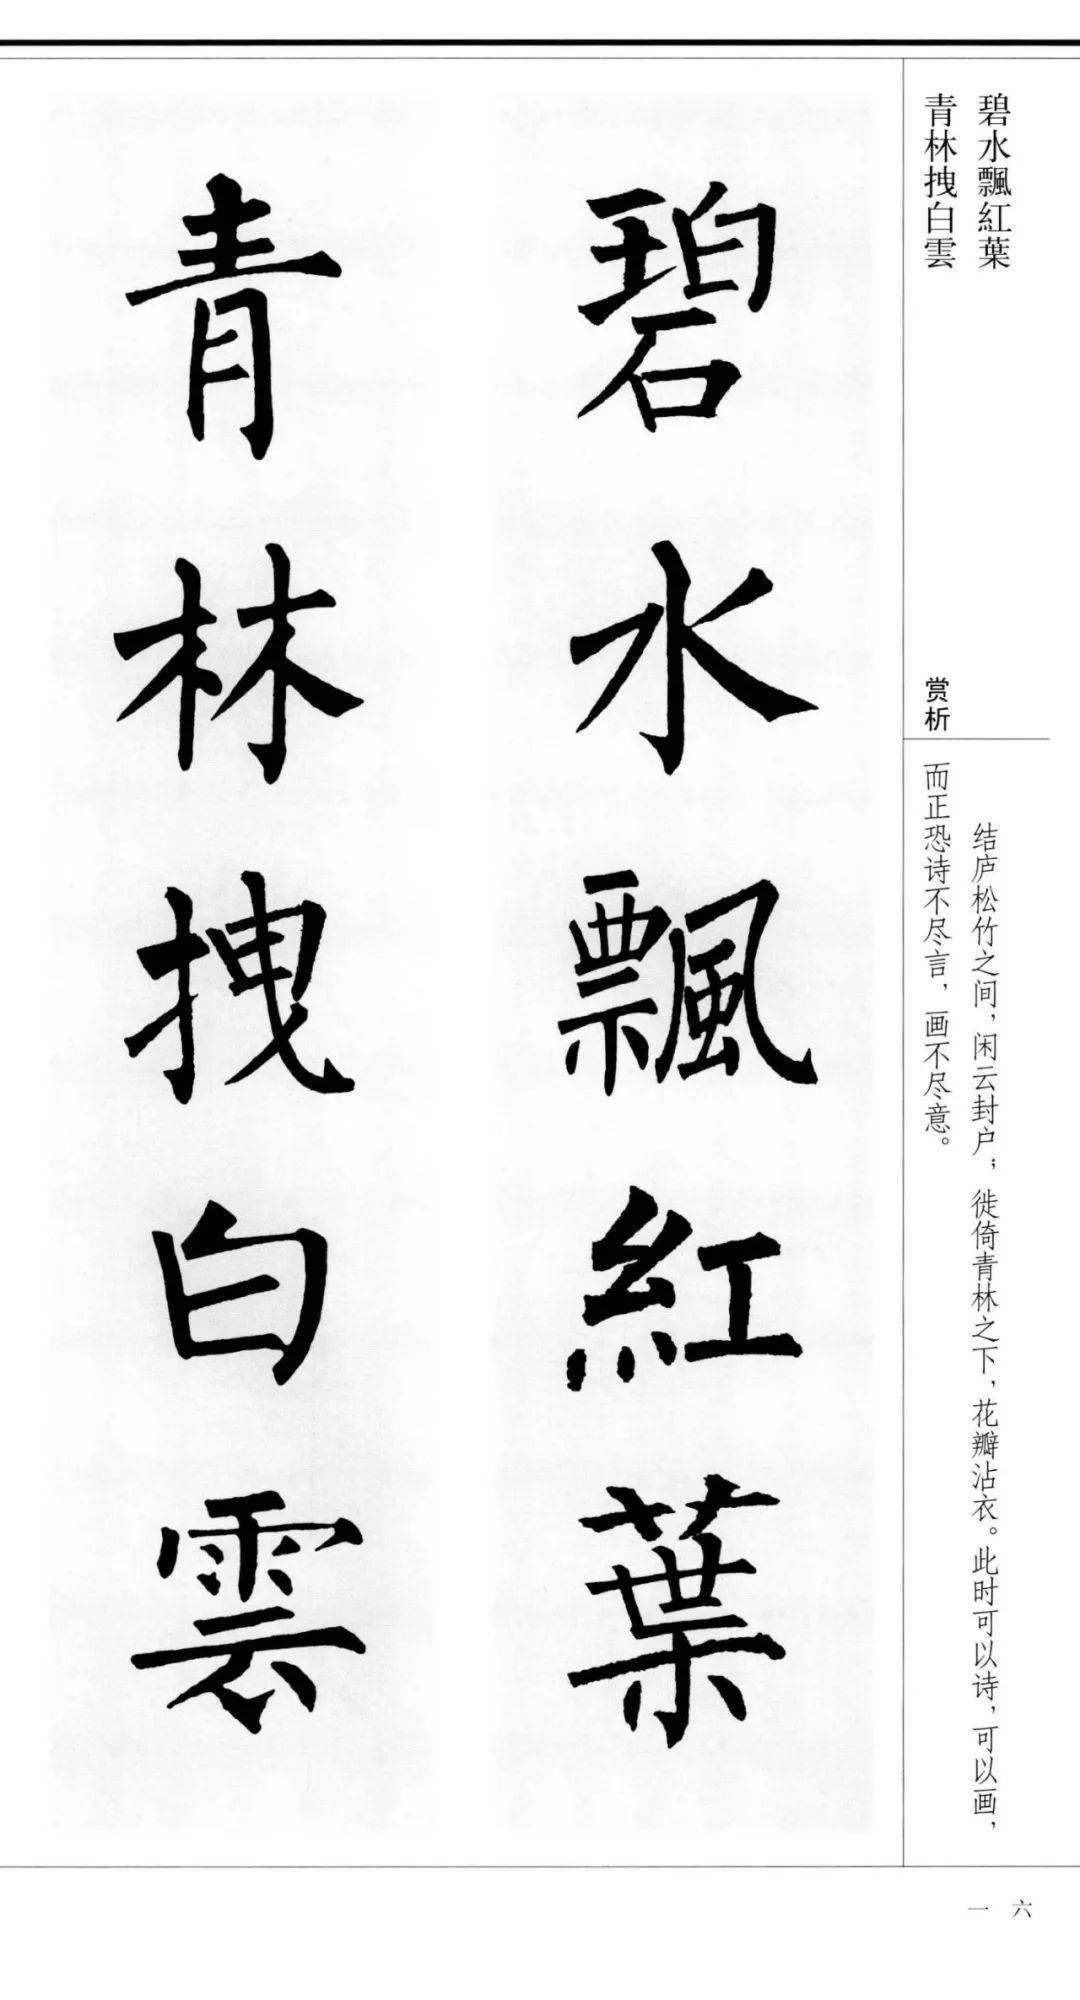 碧水飄紅葉
青林拽白雲
赏析
结庐松竹之间，闲云封户；徙倚青林之下，花瓣沾衣。此时可以诗，可以画，
而正恐诗不尽言，画不尽意。
碧水飄紅葉
青林拽白雲
一六